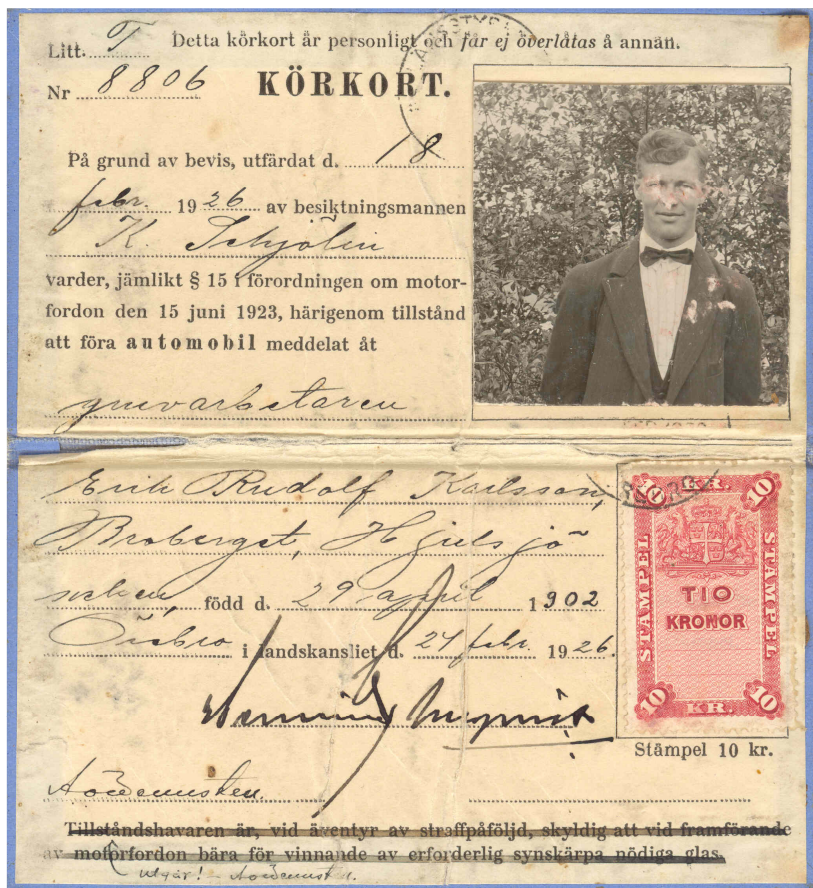 Litt. T Detta körkort är personligt och får ej överlåtas å annan.
Nr 8806 KÖRKORT.
På grund av bevis, utfärdat d. 18
febr. 1926 av besiktningsmannen
K. Schjölin
varder, jämlikt § 15 i förordningen om motor-
fordon den 15 juni 1923, härigenom tillstånd
att föra automobil meddelat åt
gruvarbetaren
Erik Rudolf Karlsson,
Broberget, Hjulsjö
socken, född d. 29 april 1902
Örebro i landskansliet d. 24 febr. 1926.
10 KR. 10
STÄMPEL
STÄMPEL
TIO
KRONOR
10 KR. 10
Stämpel 10 kr.
Tillståndshavaren är, vid äventyr av straffpåföljd, skyldig att vid framförande
av motorfordon bära för vinnande av erforderlig synskärpa nödiga glas.
utgår!